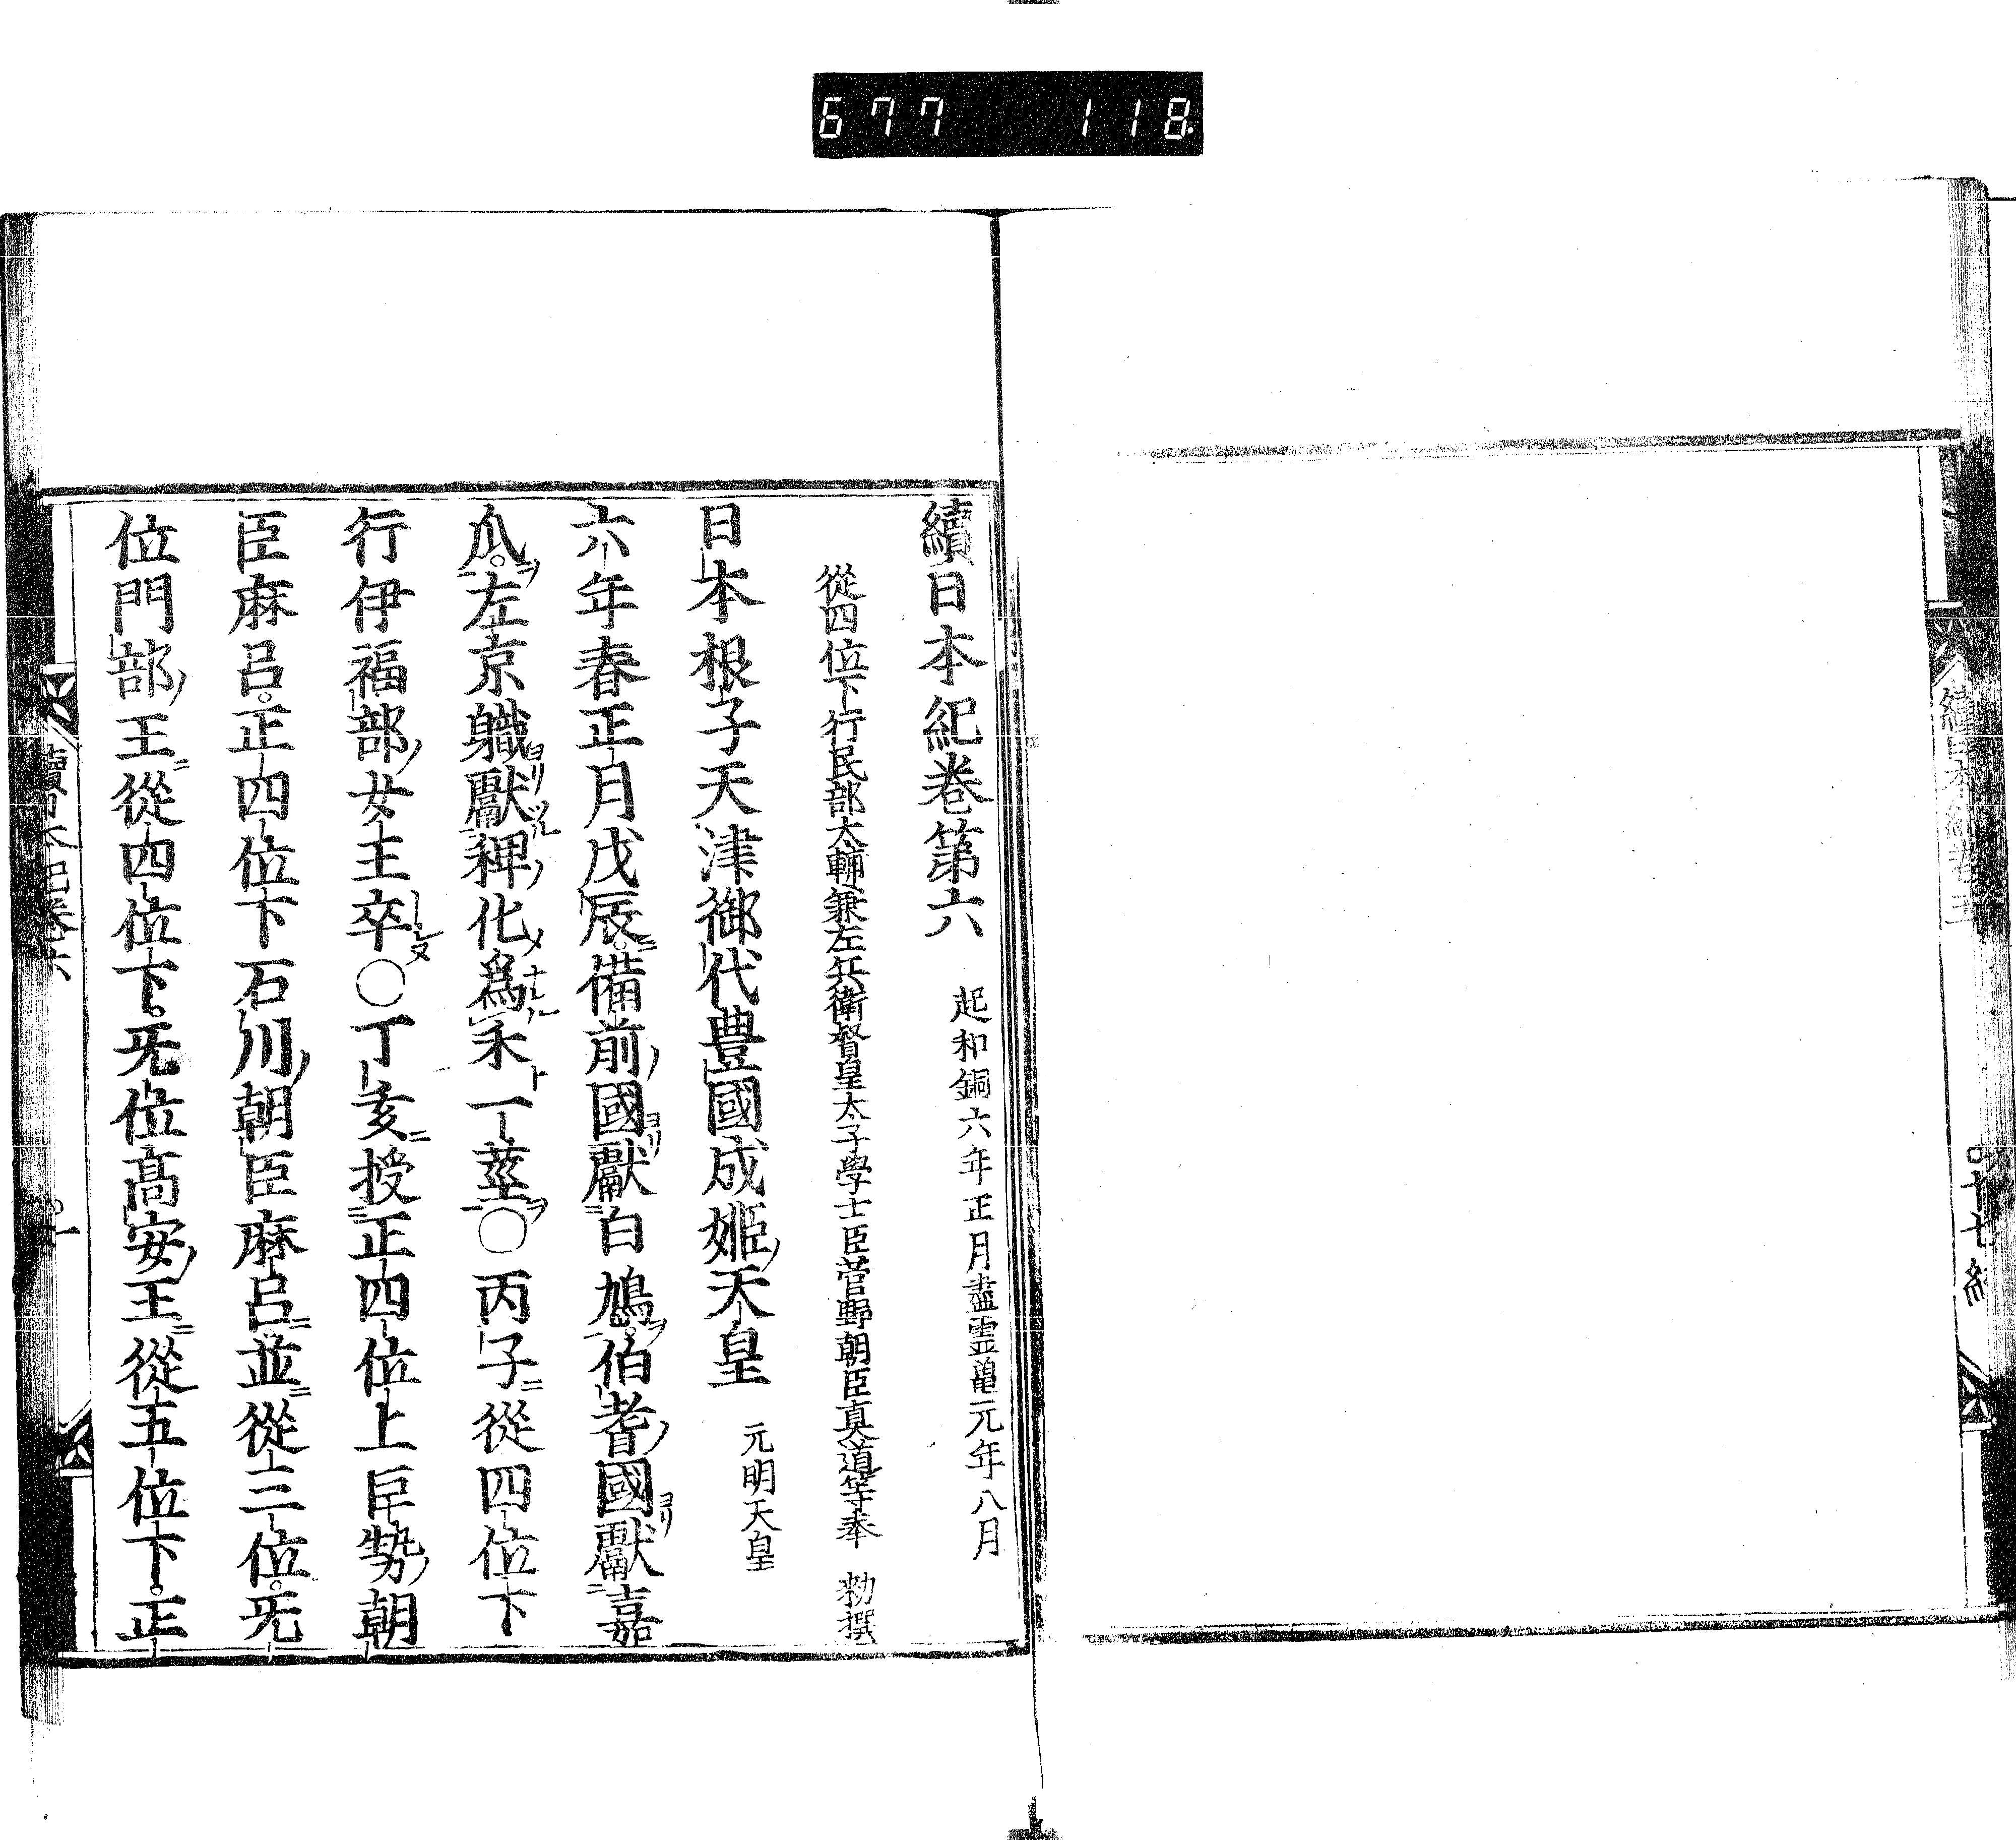 677 118
續日本紀卷第六 起和銅六年正月盡霊亀元年八月
從四位下行民部太輔兼左兵衛督皇太子學士臣菅野朝臣真道等奉 勅撰
日本根子天津御代豊國成姬天皇 元明天皇
六年春正月戊辰備前國獻白鳩。伯耆國獻嘉
瓜。左京職獻稗化爲禾一莖○丙子從四位下
行伊福部女王卒○丁亥授正四位上巨勢朝
臣麻呂。正四位下石川朝臣麻呂並從三位。旡
位門部王從四位下。旡位髙安王從五位下。正
續日本紀卷六 一